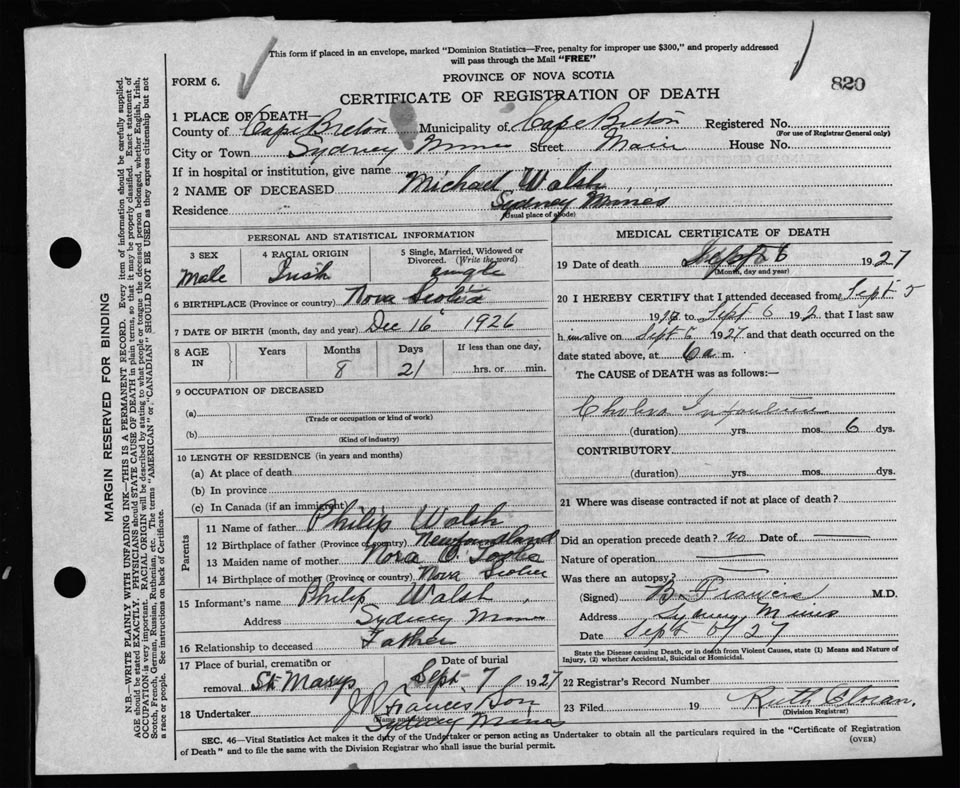 This form if placed in an envelope, marked "Dominion Statistics—Free, penalty for improper use $300," and properly addressed
will pass through the Mail "FREE"
FORM 6.
PROVINCE OF NOVA SCOTIA
820
CERTIFICATE OF REGISTRATION OF DEATH
1 PLACE OF DEATH
County of Cape Breton Municipality of Cape Breton Registered No.
(For use of Registrar General only)
City or Town Sydney Mines Street Main House No.
If in hospital or institution, give name
2 NAME OF DECEASED Michael Walsh
Residence Sydney Mines
(Usual place of abode)
PERSONAL AND STATISTICAL INFORMATION
3 SEX 4 RACIAL ORIGIN 5 Single, Married, Widowed or Divorced. (Write the word)
Male Irish single
6 BIRTHPLACE (Province or country) Nova Scotia
7 DATE OF BIRTH (month, day and year) Dec 16 1926
8 AGE IN Years Months Days If less than one day,
8 21 hrs. or min.
9 OCCUPATION OF DECEASED
(a)
(Trade or occupation or kind of work)
(b)
(Kind of industry)
10 LENGTH OF RESIDENCE (in years and months)
(a) At place of death
(b) In province
(c) In Canada (if an immigrant)
Parents
11 Name of father Philip Walsh
12 Birthplace of father (Province or country) Newfoundland
13 Maiden name of mother Nora O.
14 Birthplace of mother (Province or country) Nova Scotia
15 Informant's name Philip Walsh
Address Sydney Mines
16 Relationship to deceased Father
17 Place of burial, cremation or Date of burial
removal St Marys Sept 7 1927
18 Undertaker J Frances Son
(Name and address)
Sydney Mines
MEDICAL CERTIFICATE OF DEATH
19 Date of death Sept 6 1927
(Month, day and year)
20 I HEREBY CERTIFY that I attended deceased from Sept 5
192 to Sept 6 192 that I last saw
him alive on Sept 6 1927 and that death occurred on the
date stated above, at 6 a m.
The CAUSE of DEATH was as follows:—
Cholera Infantum
(duration) yrs. mos. 6 dys.
CONTRIBUTORY
(duration) yrs. mos. dys.
21 Where was disease contracted if not at place of death?
Did an operation precede death? no Date of
Nature of operation
Was there an autopsy?
(Signed) Francis M.D.
Address Sydney Mines
Date Sept 6/27
State the Disease causing Death, or in death from Violent Causes, state (1) Means and Nature of
Injury, (2) whether Accidental, Suicidal or Homicidal.
22 Registrar's Record Number
23 Filed 19 Ruth
(Division Registrar)
SEC. 46—Vital Statistics Act makes it the duty of the Undertaker or person acting as Undertaker to obtain all the particulars required in the "Certificate of Registration
of Death" and to file the same with the Division Registrar who shall issue the burial permit.
(OVER)
MARGIN RESERVED FOR BINDING
N.B.—WRITE PLAINLY WITH UNFADING INK—THIS IS A PERMANENT RECORD. Every item of information should be carefully supplied.
AGE should be stated EXACTLY. PHYSICIANS should STATE CAUSE OF DEATH in plain terms, so that it may be properly classified. Exact statement of
OCCUPATION is very important. RACIAL ORIGIN will be described by stating to what people or tongue the deceased person belonged, whether English, Irish,
Scotch, French, German, Russian, Ruthenian, etc. The terms "AMERICAN" or "CANADIAN" SHOULD NOT BE USED as they express citizenship but not
a race or people. See instructions on back of Certificate.